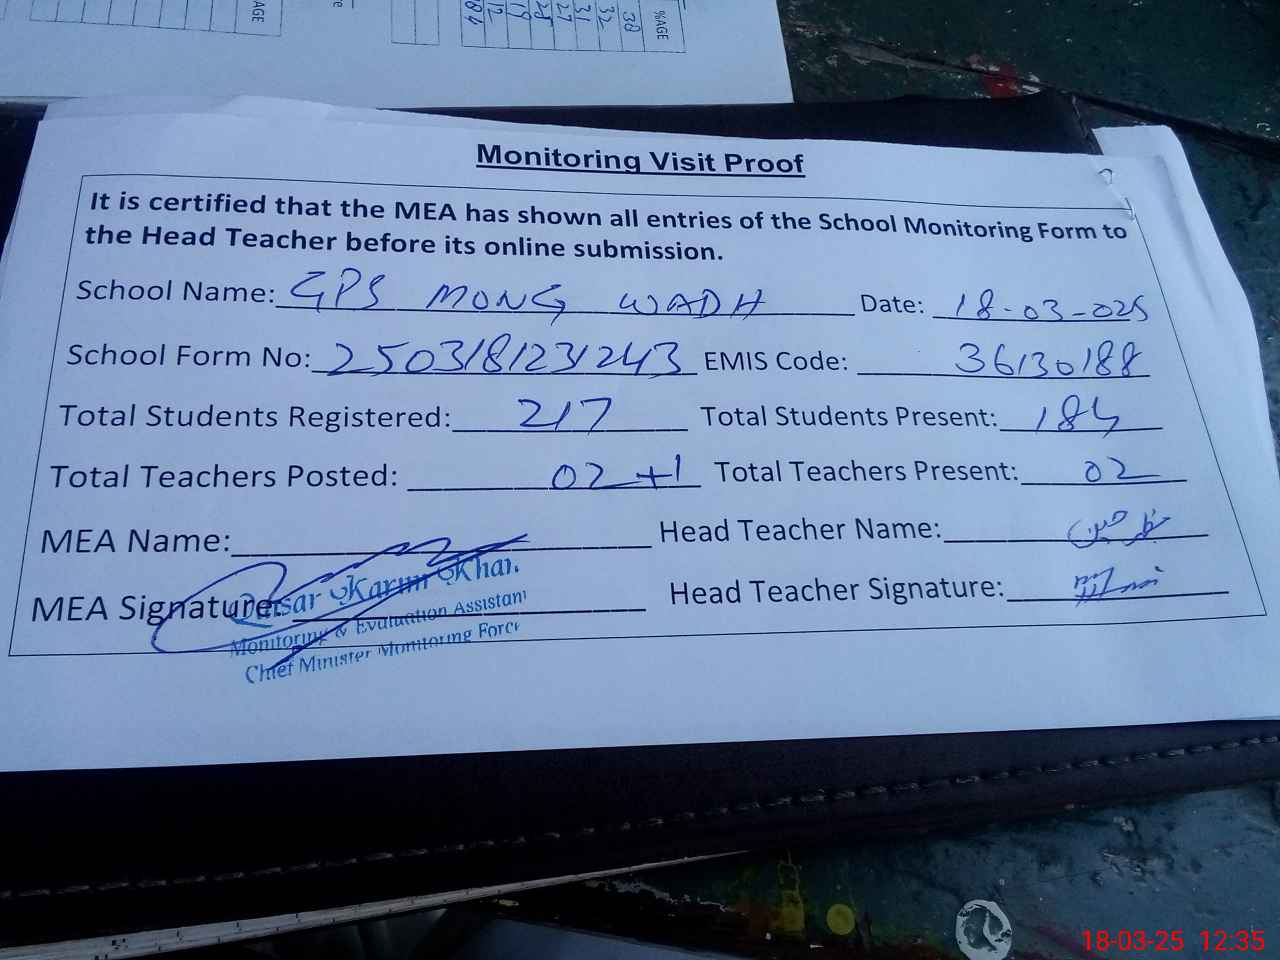 %AGE
38
32
31
27
28
19
12
84
AGE
Monitoring Visit Proof
It is certified that the MEA has shown all entries of the School Monitoring Form to
the Head Teacher before its online submission.
School Name: GPS MONG WADH Date: 18-03-025
School Form No: 2503181231243 EMIS Code: 36130188
Total Students Registered: 217 Total Students Present: 184
Total Teachers Posted: 02+1 Total Teachers Present: 02
MEA Name: Head Teacher Name:
MEA Signature: Head Teacher Signature:
Qaisar Karim Khan
Monitoring & Evaluation Assistant
Chief Minister Monitoring Force
18-03-25 12:35